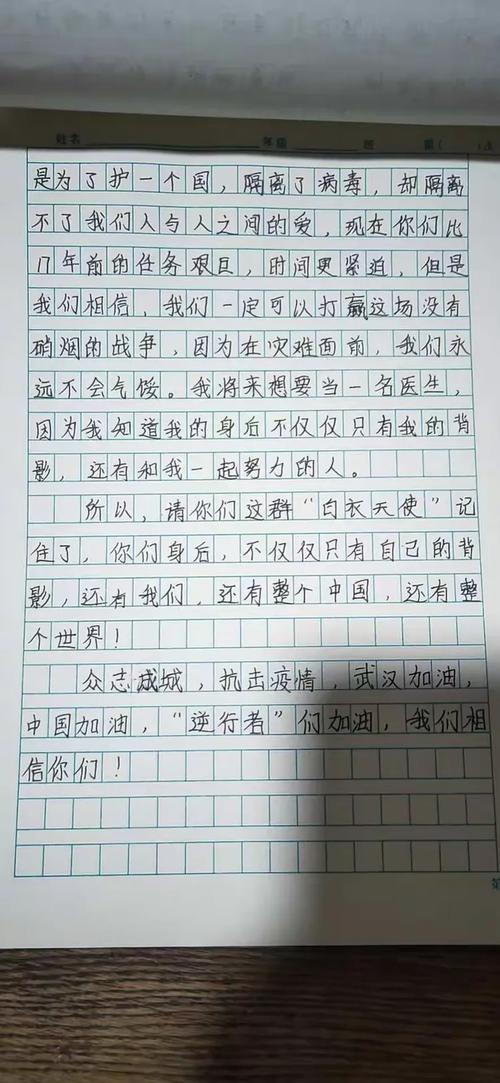 姓名 年级 班
是为了护一个国，隔离了病毒，却隔离
不了我们人与人之间的爱，现在你们比
17年前的任务艰巨，时间更紧迫，但是
我们相信，我们一定可以打赢这场没有
硝烟的战争，因为在灾难面前，我们永
远不会气馁。我将来想要当一名医生，
因为我知道我的身后不仅仅只有我的背
影，还有和我一起努力的人。
所以，请你们这群“白衣天使”记
住了，你们身后，不仅仅只有自己的背
影，还有我们，还有整个中国，还有整
个世界！
众志成城，抗击疫情，武汉加油，
中国加油，“逆行者”们加油，我们相
信你们！
第